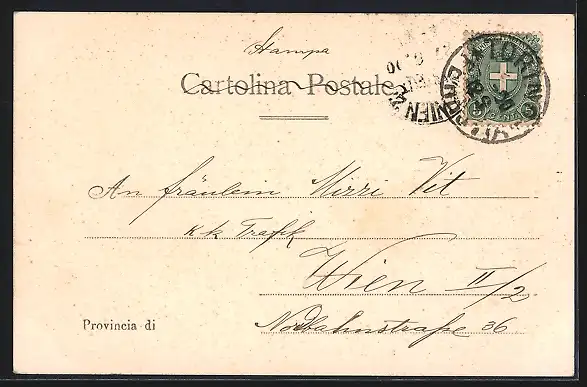 Stampa
Cartolina Postale
TORINO
WIEN
An fräulein Mizzi Vit
k k Trafik
Wien II/2
Nordbahnstraße 36
Provincia di